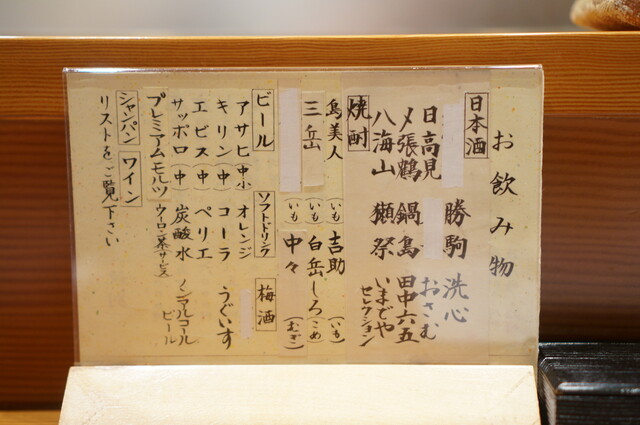 お飲み物
日本酒
勝駒 洗心
日高見 おさむ
〆張鶴 鍋島 田中六五
八海山 獺祭 いまでやセレクション
焼酎
島美人（いも） 吉助（いも）
三岳（いも） 白岳しろ（こめ）
（いも） 中々（むぎ）
ビール ソフトドリンク 梅酒
アサヒ 中小 オレンジ
キリン（中） コーラ うぐいす
エビス（中） ペリエ
サッポロ（中） 炭酸水 ノンアルコールビール
プレミアムモルツ ウーロン茶サービス
シャンパン ワイン
リストをご覧下さい